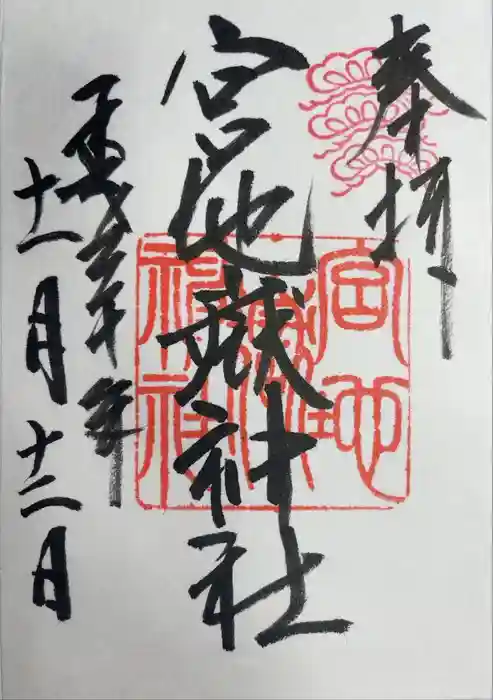 奉拝
宮地嶽神社
年
十一月十二日
宮地
嶽
神社